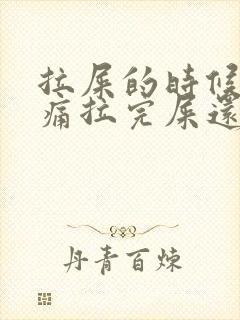 拉屎的时候
痛拉完屎還
丹青百炼